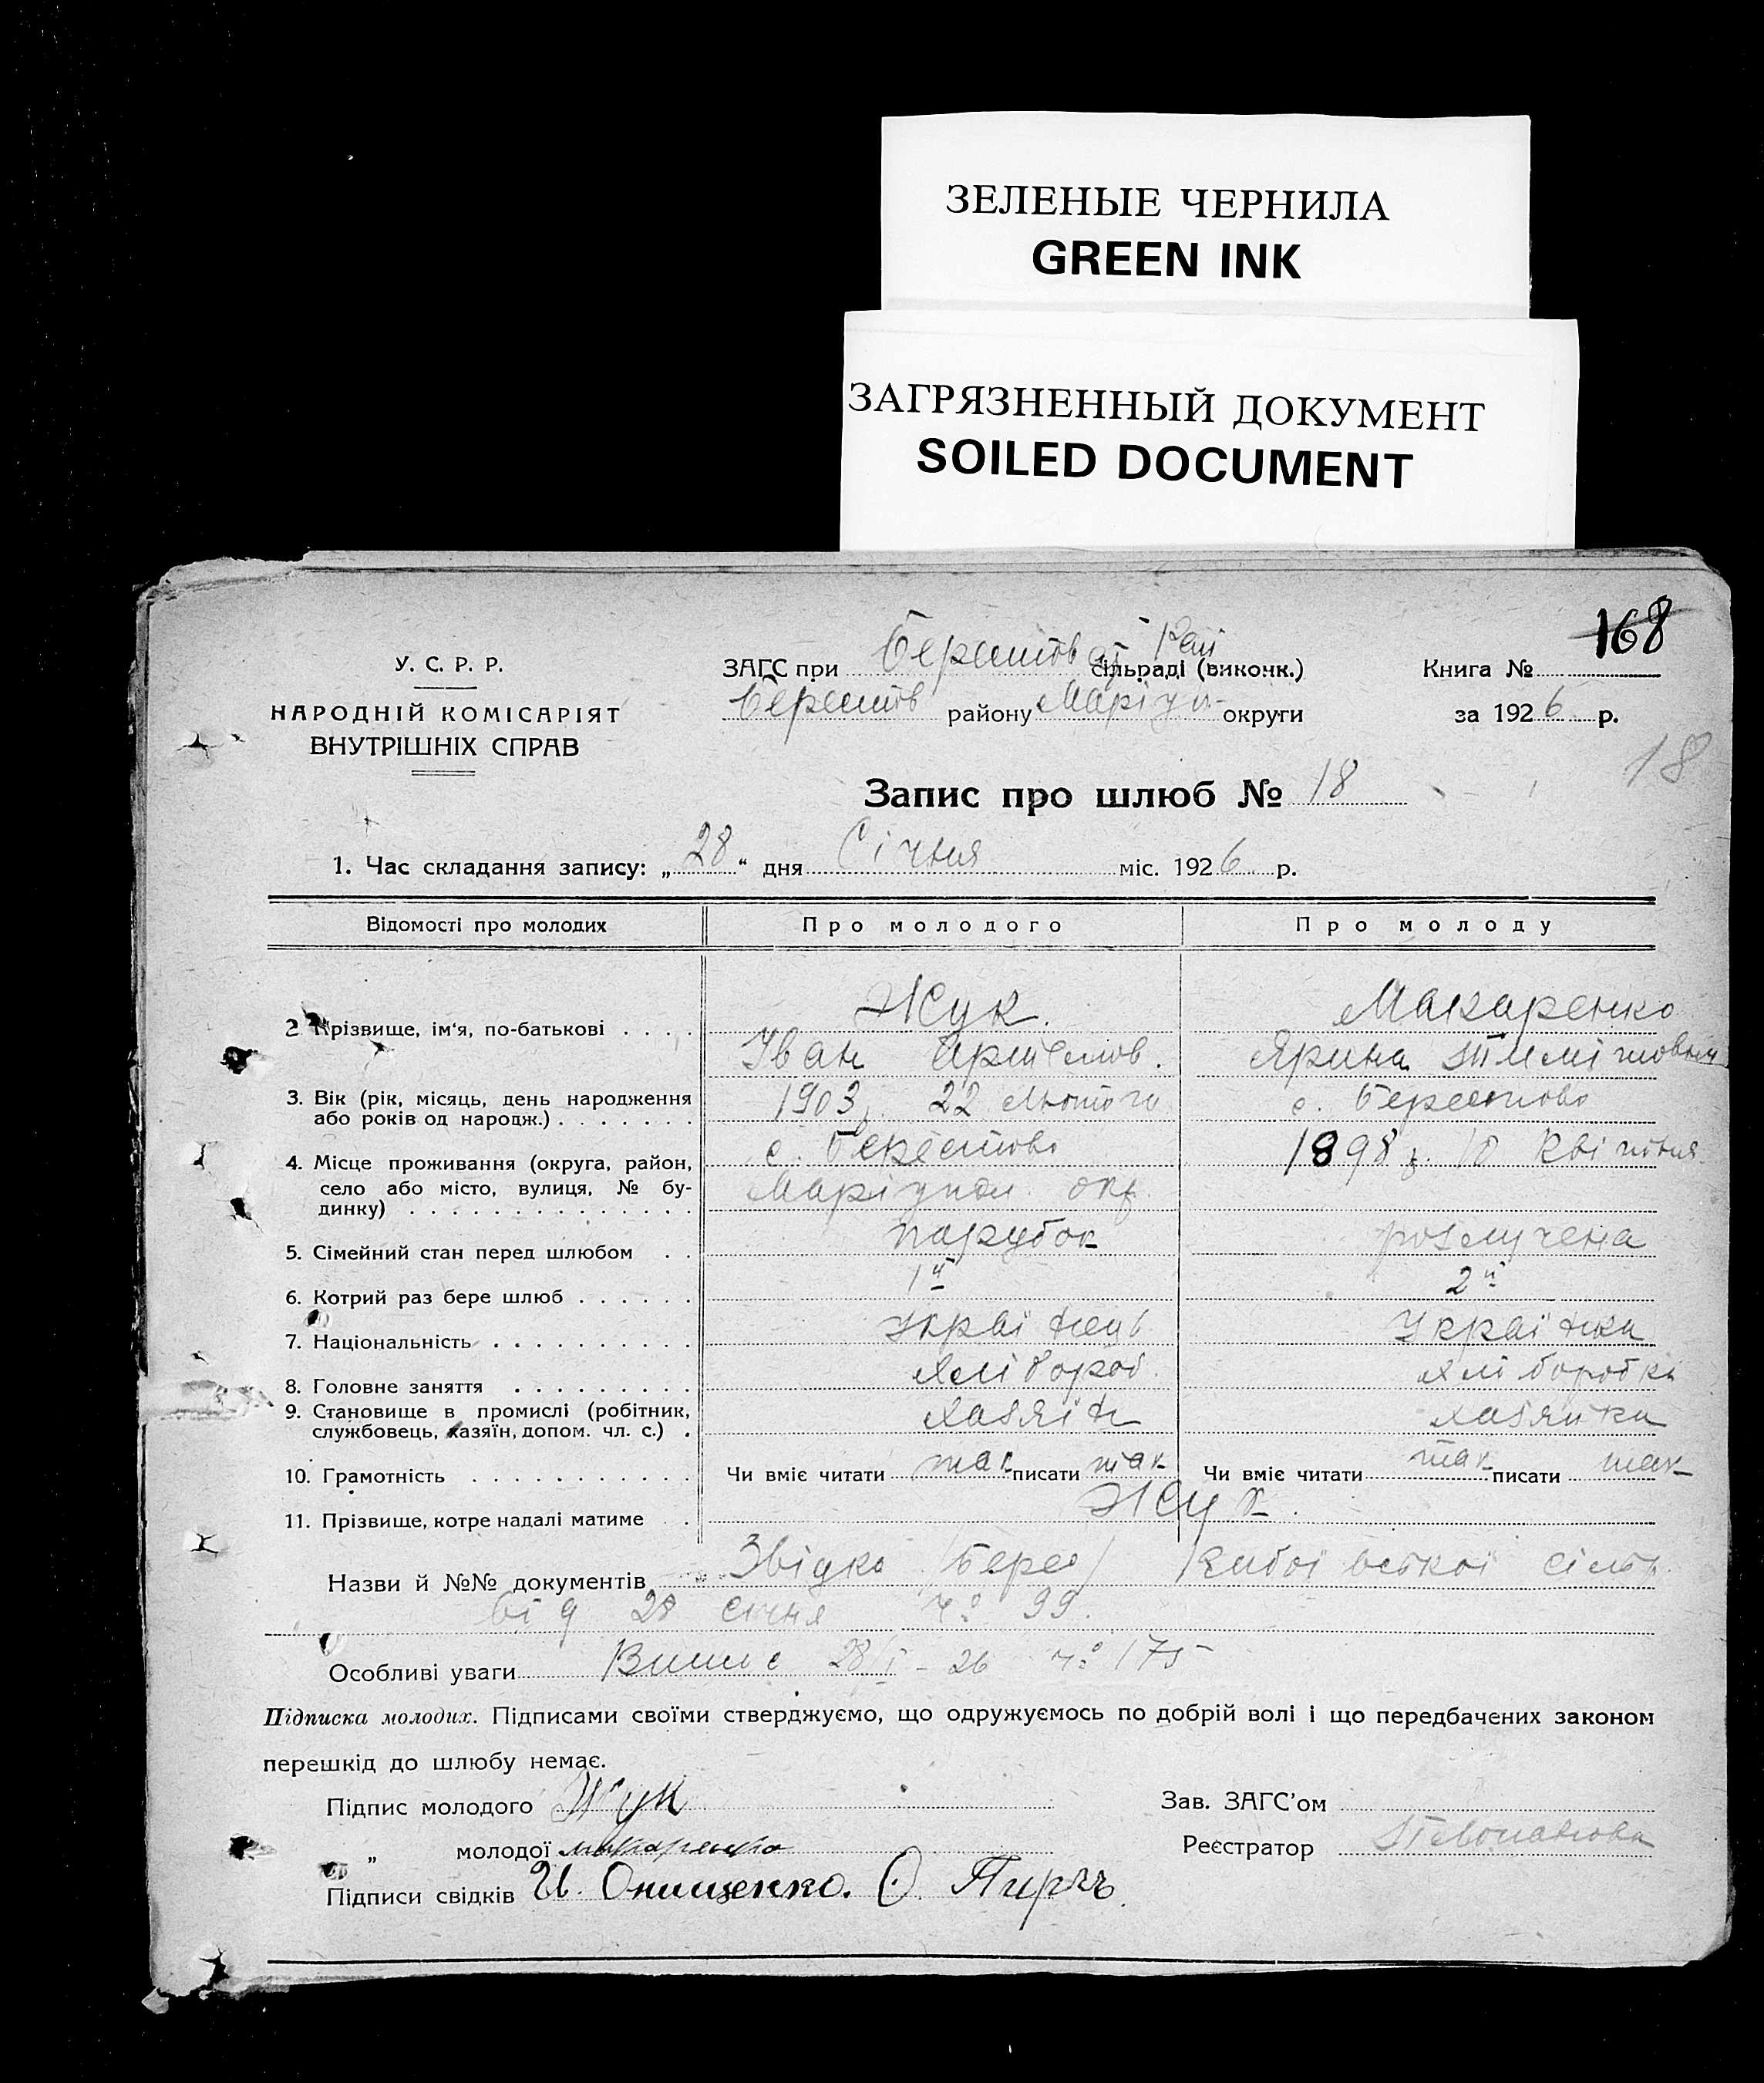 ЗЕЛЕНЫЕ ЧЕРНИЛА
GREEN INK
ЗАГРЯЗНЕННЫЙ ДОКУМЕНТ
SOILED DOCUMENT
168
У. С. Р. Р.
НАРОДНІЙ КОМІСАРІЯТ
ВНУТРІШНІХ СПРАВ
ЗАГС при Берестов сільраді (виконк.)
Берестов району Маріуп- округи
Книга №
за 1926 р.
18
Запис про шлюб № 18
1. Час складання запису: „28“ дня Січня міс. 1926 р.
Відомості про молодих Про молодого Про молоду
2 Прізвище, ім'я, по-батькові Жук. Макаренко
Іван Артемов. Ярина
3. Вік (рік, місяць, день народження або років од народж.) 1903 22 Лютого с. Берестово
4. Місце проживання (округа, район, село або місто, вулиця, № будинку) с. Берестово 1898 10 Квітня
Маріупол. окр.
5. Сімейний стан перед шлюбом парубок розлучена
6. Котрий раз бере шлюб 1й 2й
7. Національність Українець Українка
8. Головне заняття хлібороб хліборобка
9. Становище в промислі (робітник, службовець, хазяїн, допом. чл. с.) хазяїн хазяйка
10. Грамотність Чи вміє читати так писати так Чи вміє читати так писати так
11. Прізвище, котре надалі матиме Жук.
Назви й №№ документів сільр.
від 28 січня № 99.
Особливі уваги 28/I - 26 № 175
Підписка молодих. Підписами своїми стверджуємо, що одружуємось по добрій волі і що передбачених законом
перешкід до шлюбу немає.
Підпис молодого Жук
„ молодої Макаренко
Підписи свідків И. Онищенко. О.
Зав. ЗАГС'ом
Реєстратор